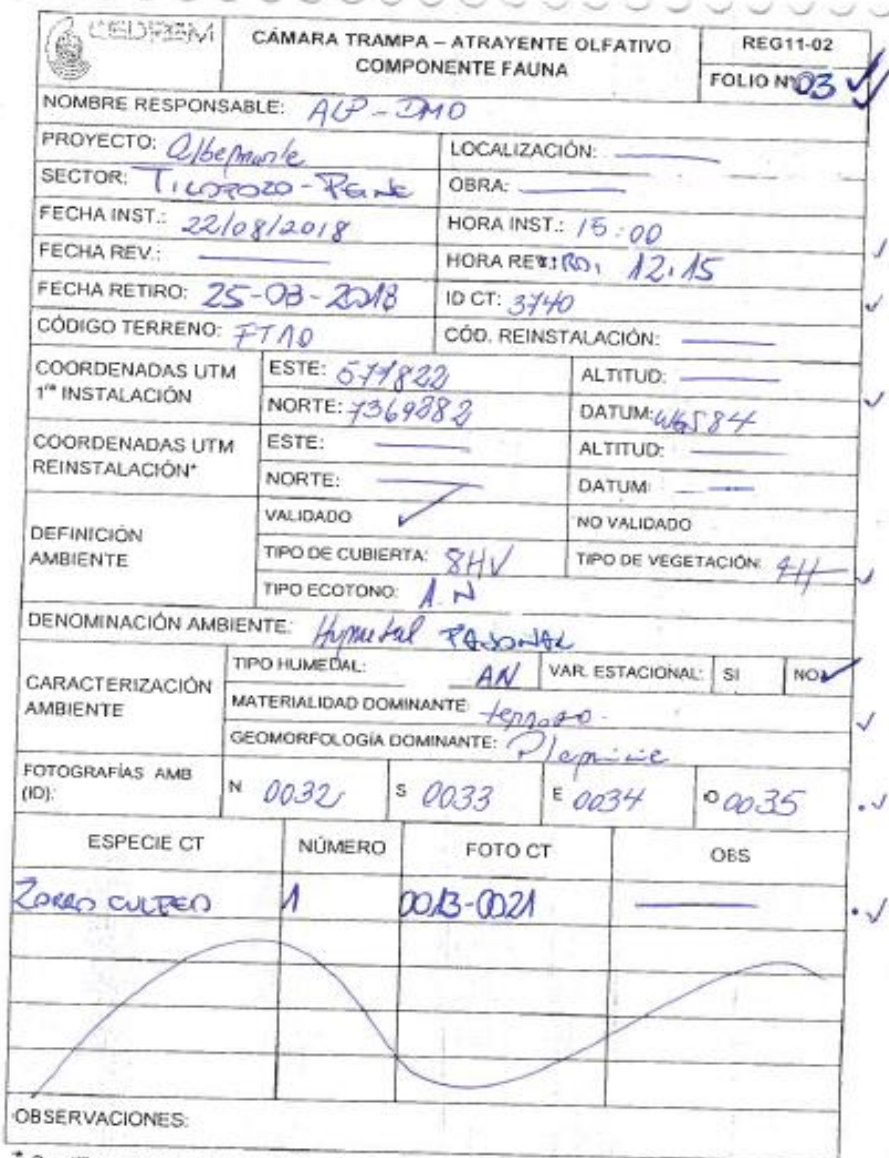 CEDREM
CÁMARA TRAMPA – ATRAYENTE OLFATIVO
COMPONENTE FAUNA
REG11-02
FOLIO N° 03
NOMBRE RESPONSABLE: ALP - DMO
PROYECTO: Albemarle
LOCALIZACIÓN:
SECTOR: TILOPOZO - PEINE
OBRA:
FECHA INST.: 22/08/2018
HORA INST.: 15:00
FECHA REV.:
HORA RETIRO: 12:15
FECHA RETIRO: 25-08-2018
ID CT: 3740
CÓDIGO TERRENO: FT10
CÓD. REINSTALACIÓN:
COORDENADAS UTM
1ra INSTALACIÓN
ESTE: 577822
ALTITUD:
NORTE: 7369882
DATUM: WGS84
COORDENADAS UTM
REINSTALACIÓN*
ESTE:
ALTITUD:
NORTE:
DATUM:
DEFINICIÓN
AMBIENTE
VALIDADO ✓
NO VALIDADO
TIPO DE CUBIERTA: 8HV
TIPO DE VEGETACIÓN: 4H
TIPO ECOTONO: A.N
DENOMINACIÓN AMBIENTE: Humedal PAJONAL
CARACTERIZACIÓN
AMBIENTE
TIPO HUMEDAL: AN
VAR. ESTACIONAL: SI NO ✓
MATERIALIDAD DOMINANTE: terroso.
GEOMORFOLOGÍA DOMINANTE: Planicie
FOTOGRAFÍAS AMB
(ID):
N 0032
S 0033
E 0034
O 0035
ESPECIE CT NÚMERO FOTO CT OBS
ZORRO CULPEO 1 0013-0021
OBSERVACIONES: